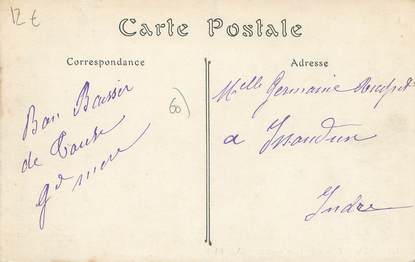 12 €
Carte Postale
Correspondance
Adresse
Bon Baiser
de
Gd mere
60
Melle Germaine
a Issoudun
Indre